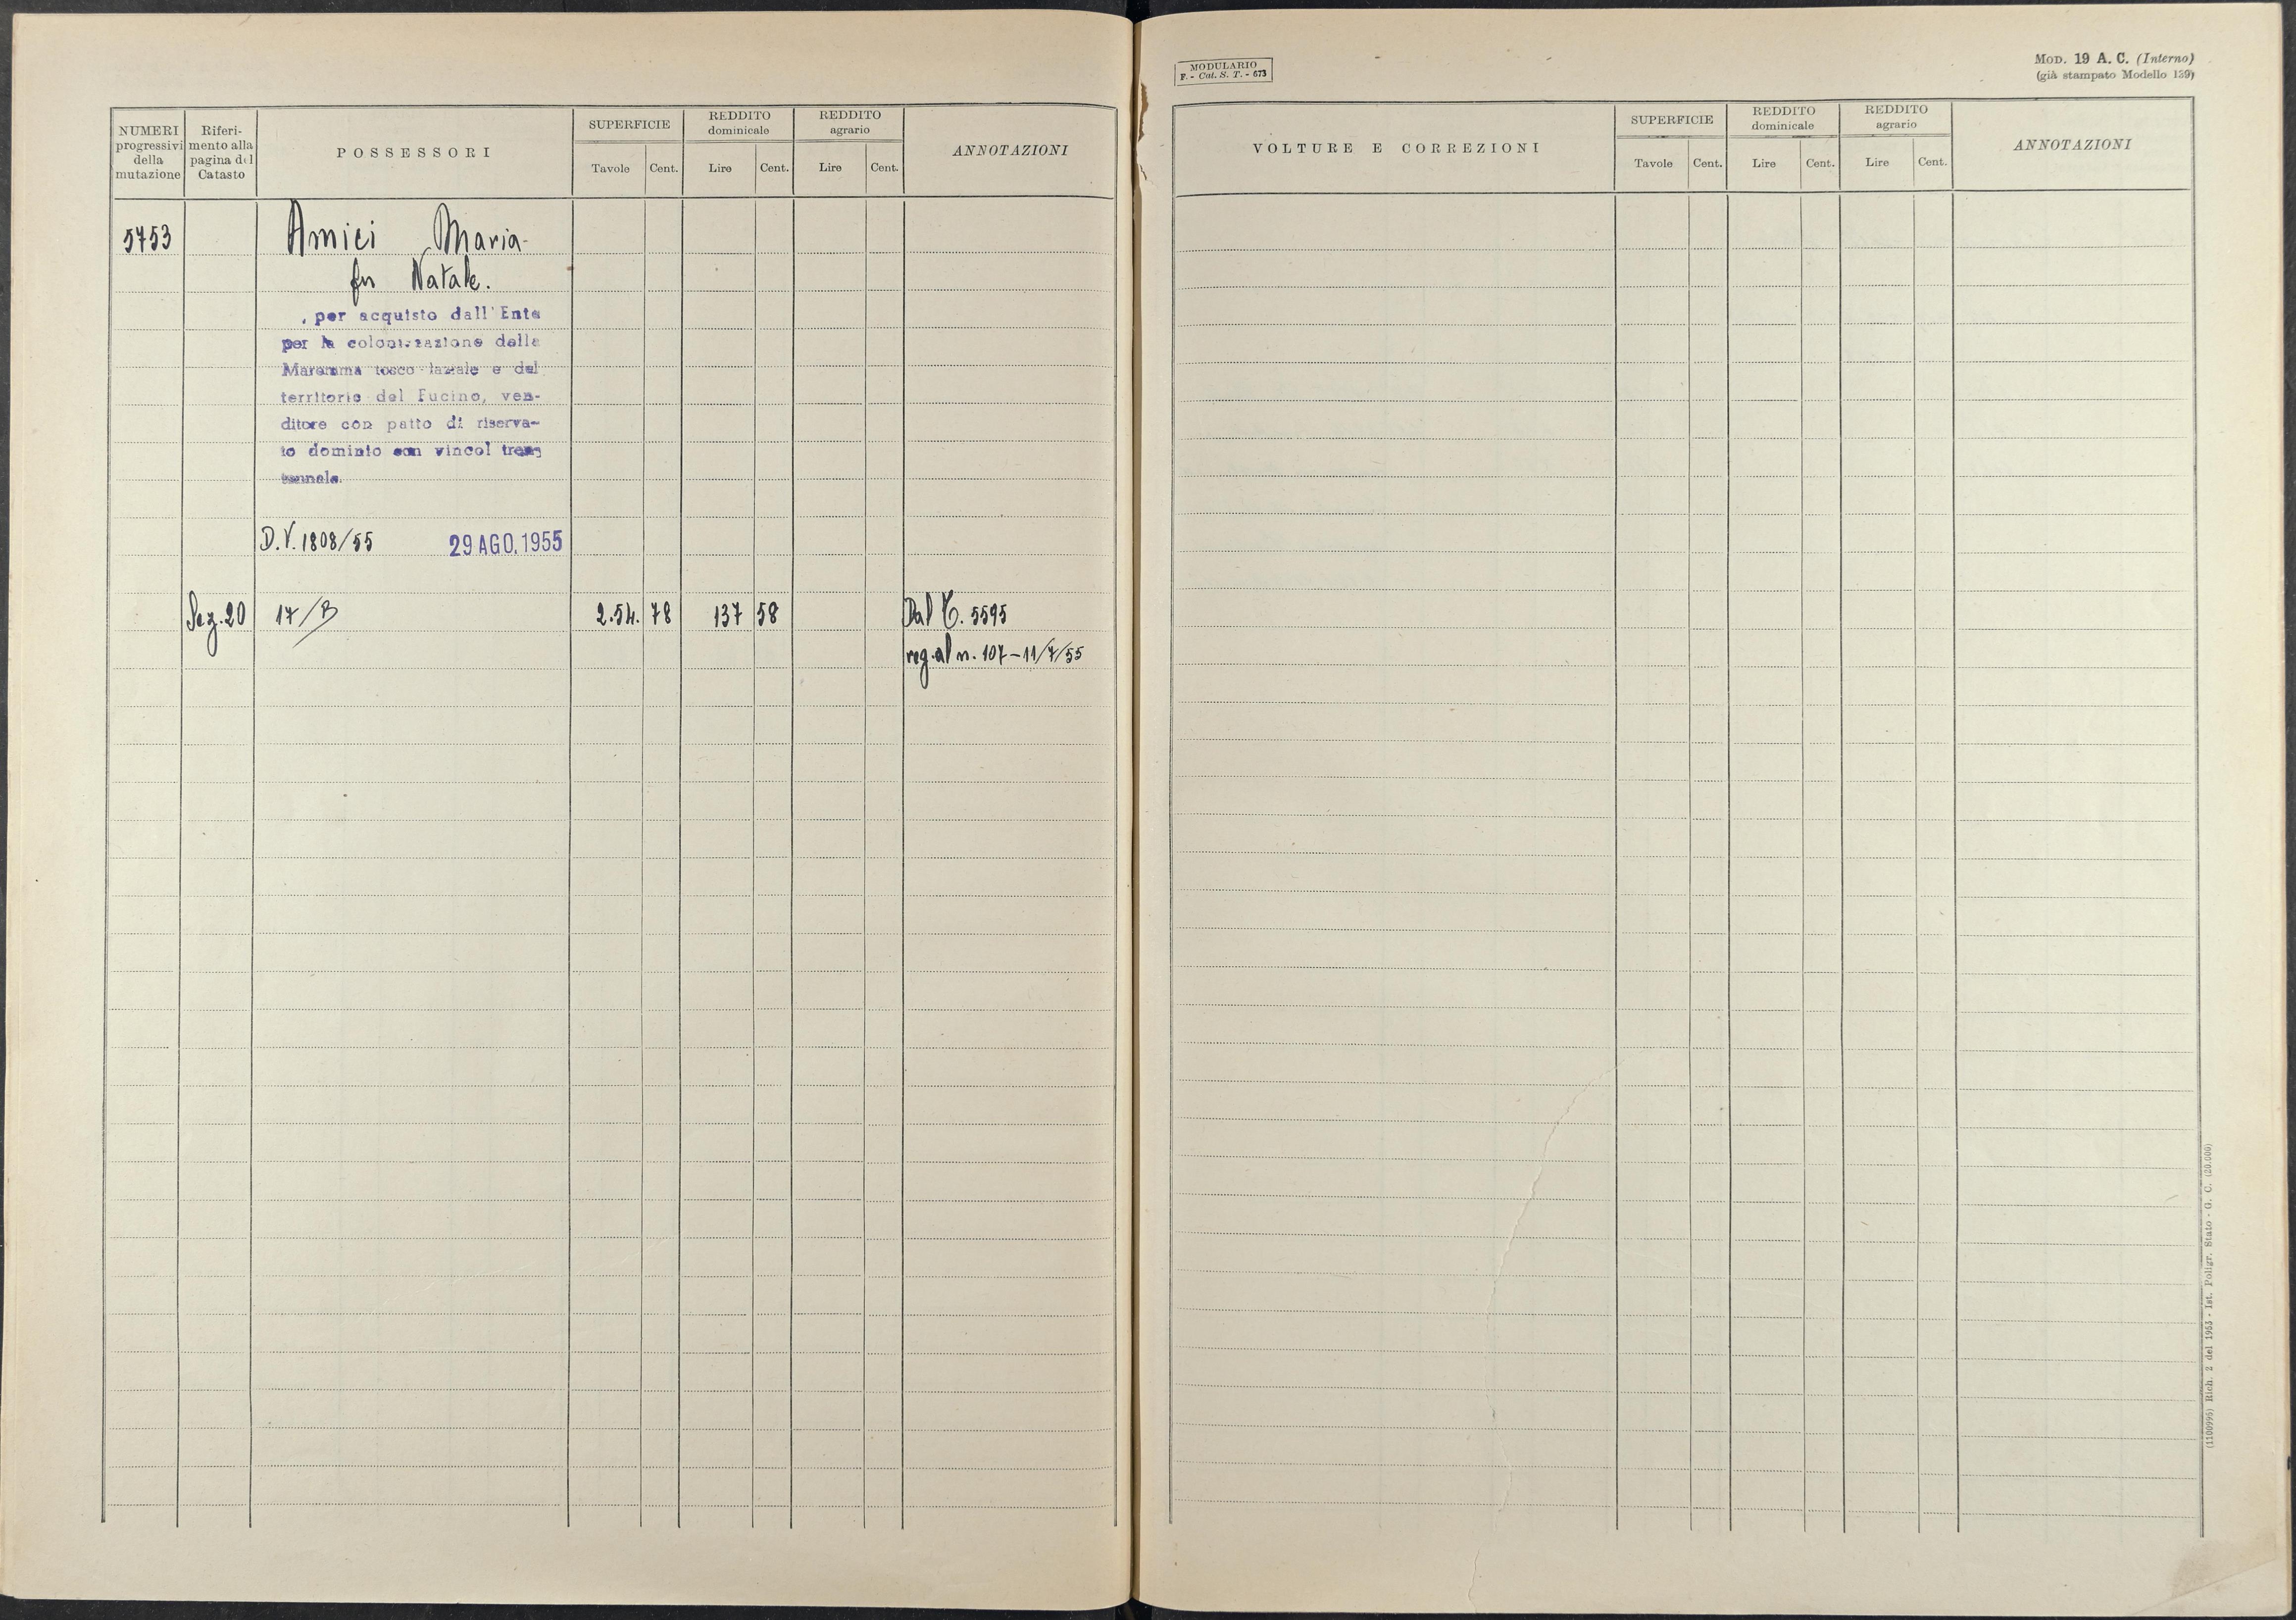 NUMERI progressivi della mutazione
Riferi-mento alla pagina del Catasto
POSSESSORI
SUPERFICIE
Tavole Cent.
REDDITO dominicale
Lire Cent.
REDDITO agrario
Lire Cent.
ANNOTAZIONI
5753 Amici Maria
fu Natale.
, per acquisto dall'Ente
per la colonizzazione della
Maremma tosco-laziale e del
territorio del Fucino, ven-
ditore con patto di riserva-
to dominio con vincol tren
tennale.
D.V. 1808/55 29 AGO. 1955
Sez. 20 17/B 2.54. 78 137 58 Dal C. 5595
reg. al n. 107-11/7/55
MODULARIO
F. - Cat. S. T. - 673
MOD. 19 A. C. (Interno)
(già stampato Modello 139)
VOLTURE E CORREZIONI
SUPERFICIE
Tavole Cent.
REDDITO dominicale
Lire Cent.
REDDITO agrario
Lire Cent.
ANNOTAZIONI
(1100996) Rich. 2 del 1953 - Ist. Poligr. Stato - G. C. (20.000)